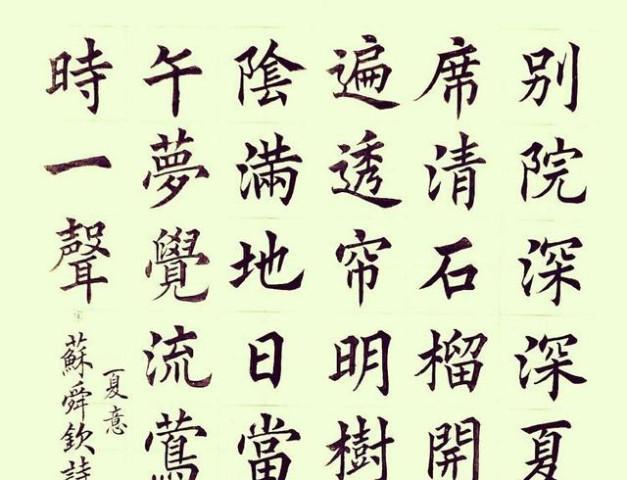 别院深深夏
席清石榴開
遍透帘明樹
陰滿地日當
午夢覺流鶯
時一聲
夏意
蘇舜欽詩